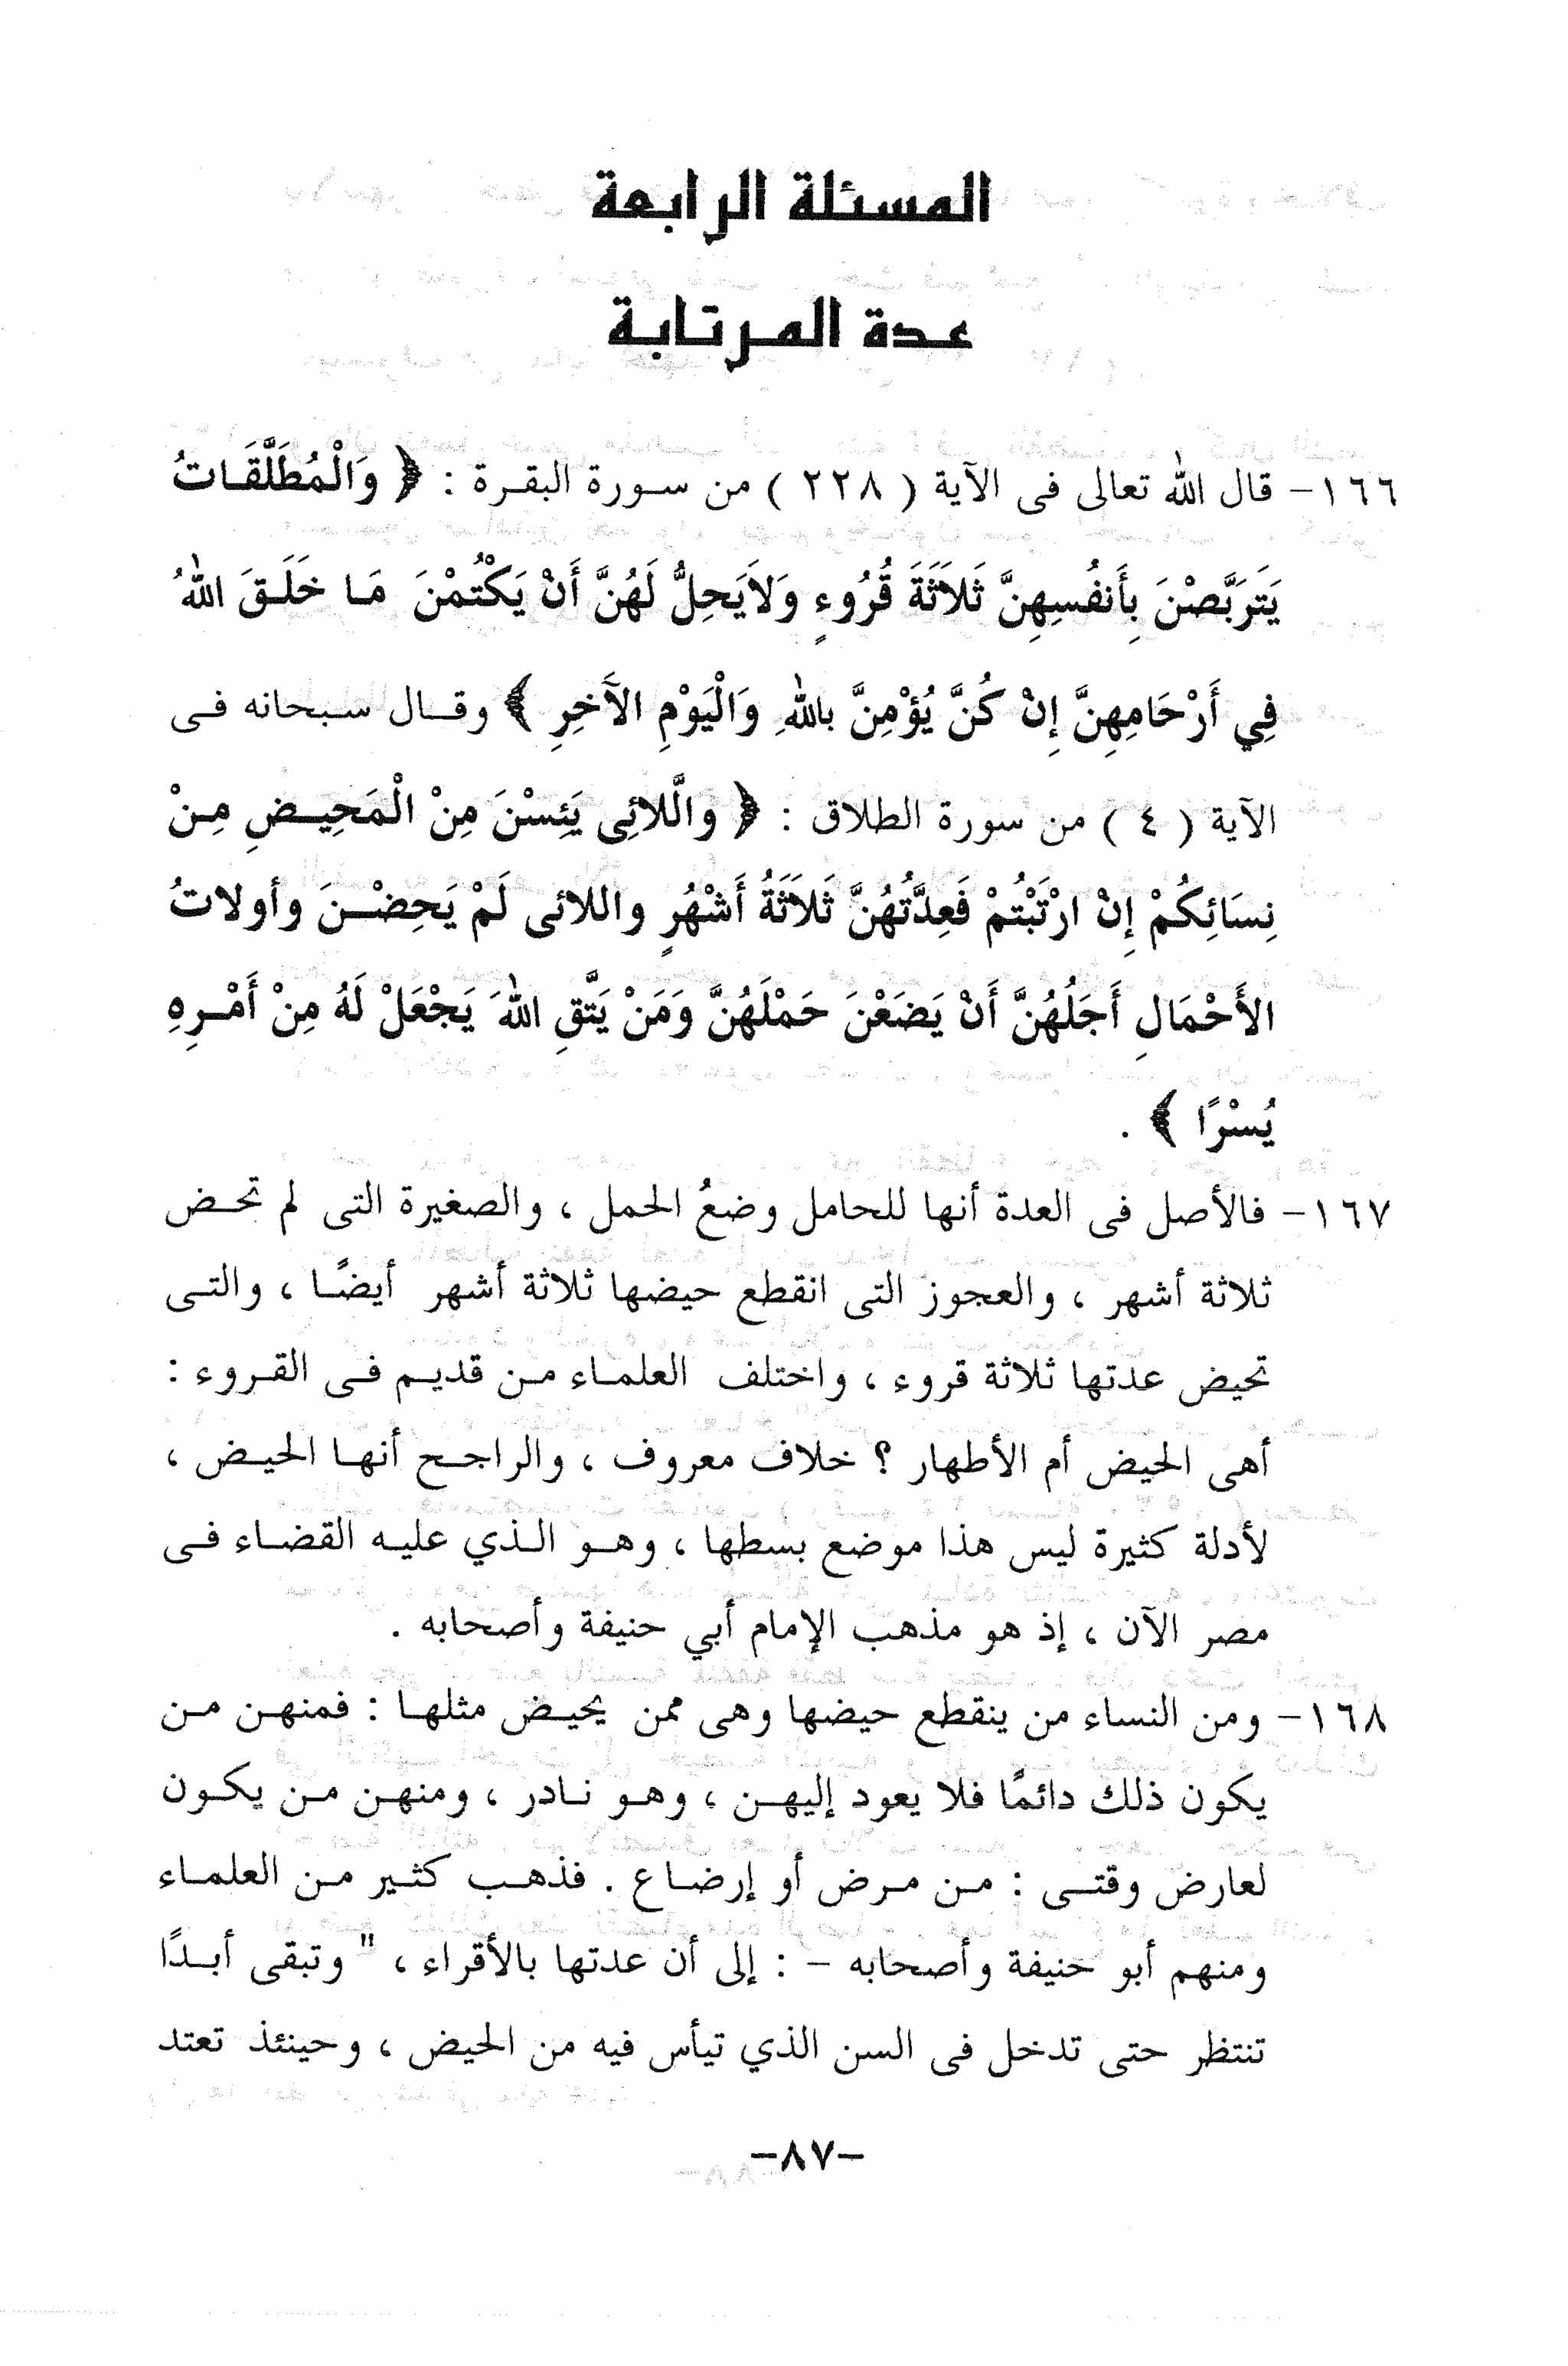 المسئلة الرابعة
عدة المرتابة
١٦٦- قال الله تعالى فى الآية ( ٢٢٨ ) من سورة البقرة : ﴿ وَالْمُطَلَّقَاتُ
يَتَرَبَّصْنَ بِأَنفُسِهِنَّ ثَلاَثَةَ قُرُوءٍ وَلاَيَحِلُّ لَهُنَّ أَنْ يَكْتُمْنَ مَا خَلَقَ اللهُ
فِي أَرْحَامِهِنَّ إِنْ كُنَّ يُؤْمِنَّ بِاللهِ وَالْيَوْمِ الآخِرِ ﴾ وقال سبحانه فى
الآية ( ٤ ) من سورة الطلاق : ﴿ والَّلائِى يَئِسْنَ مِنْ الْمَحِيضِ مِنْ
نِسَائِكُمْ إِنْ ارْتَبْتُمْ فَعِدَّتُهُنَّ ثَلاَثَةُ أَشْهُرٍ واللائى لَمْ يَحِضْنَ وأولاتُ
الأَحْمَالِ أَجَلُهُنَّ أَنْ يَضَعْنَ حَمْلَهُنَّ وَمَنْ يَتَّقِ اللهَ يَجْعَلْ لَهُ مِنْ أَمْرِهِ
يُسْرًا ﴾ .
١٦٧- فالأصل فى العدة أنها للحامل وضعُ الحمل ، والصغيرة التى لم تحض
ثلاثة أشهر ، والعجوز التى انقطع حيضها ثلاثة أشهر أيضًا ، والتى
تحيض عدتها ثلاثة قروء ، واختلف العلماء من قديم فى القروء :
أهى الحيض أم الأطهار ؟ خلاف معروف ، والراجح أنها الحيض ،
لأدلة كثيرة ليس هذا موضع بسطها ، وهو الذي عليه القضاء فى
مصر الآن ، إذ هو مذهب الإمام أبي حنيفة وأصحابه .
١٦٨- ومن النساء من ينقطع حيضها وهى ممن يحيض مثلها : فمنهن من
يكون ذلك دائمًا فلا يعود إليهن ، وهو نادر ، ومنهن من يكون
لعارض وقتى : من مرض أو إرضاع . فذهب كثير من العلماء
ومنهم أبو حنيفة وأصحابه - : إلى أن عدتها بالأقراء ، " وتبقى أبدًا
تنتظر حتى تدخل فى السن الذي تيأس فيه من الحيض ، وحينئذ تعتد
-٨٧-